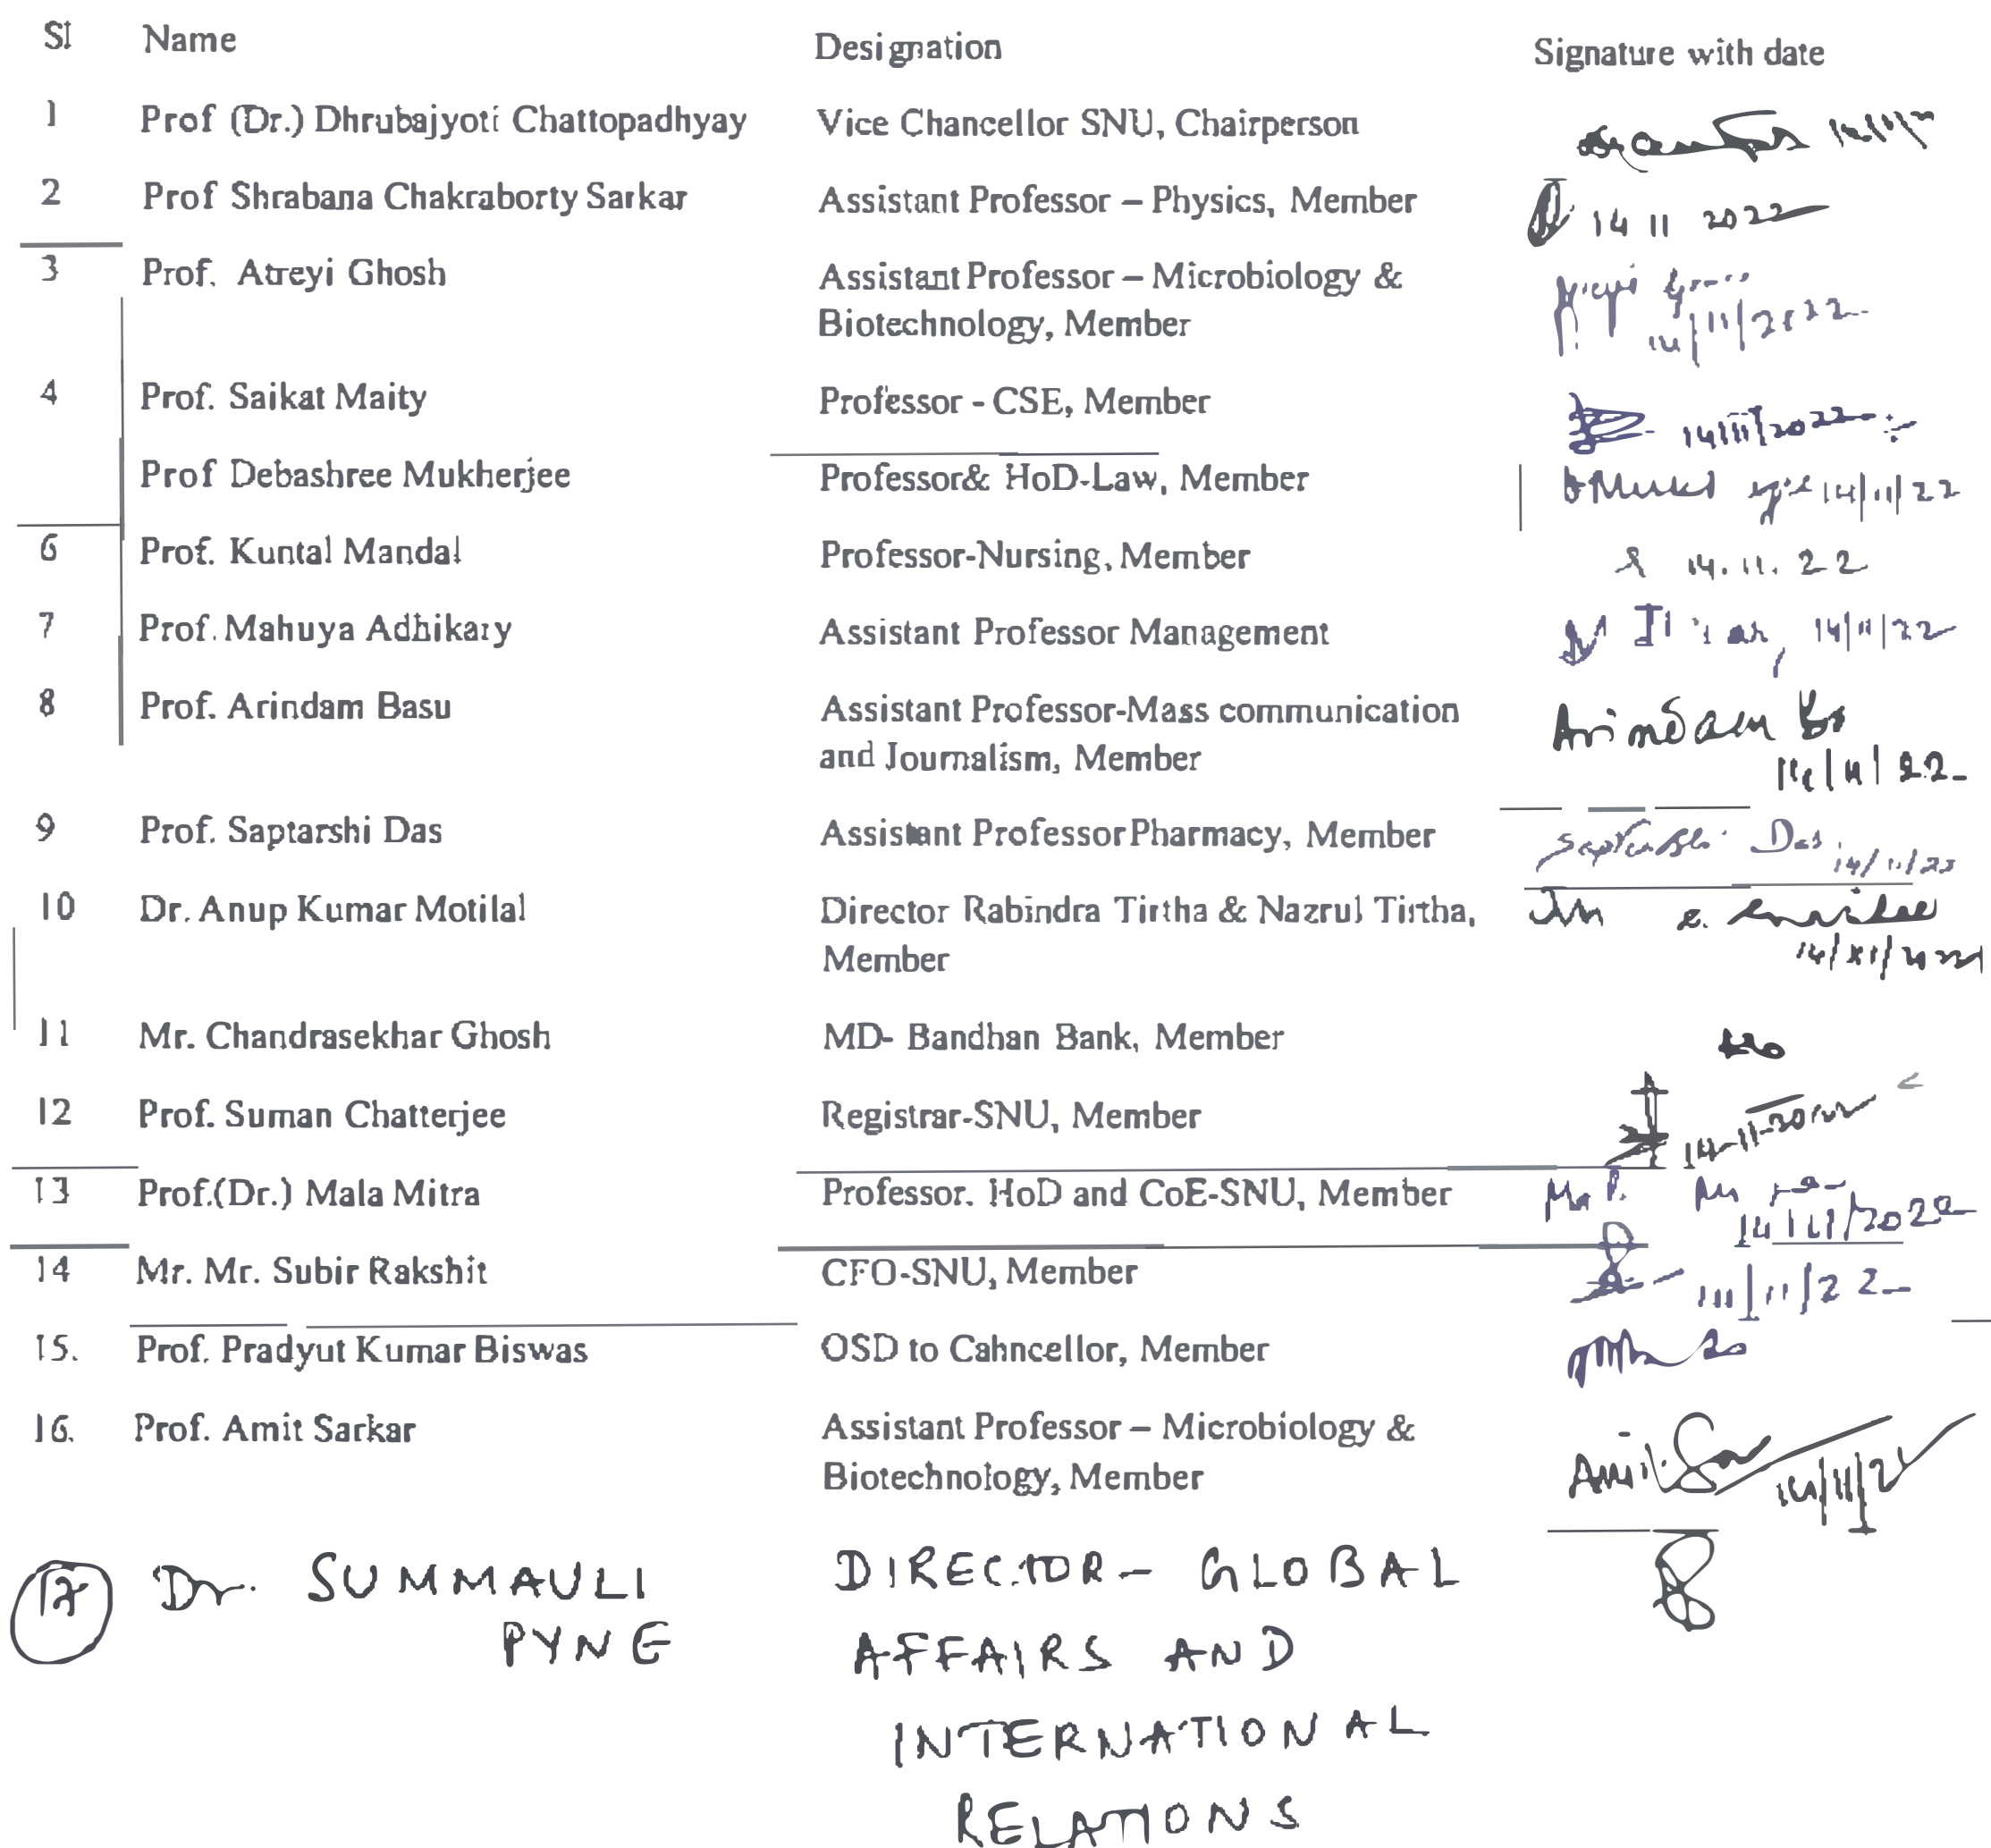 Sl Name Designation Signature with date
1 Prof (Dr.) Dhrubajyoti Chattopadhyay Vice Chancellor SNU, Chairperson
2 Prof Shrabana Chakraborty Sarkar Assistant Professor – Physics, Member 14 11 2022
3 Prof. Atreyi Ghosh Assistant Professor – Microbiology &
Biotechnology, Member 14/11/2022
4 Prof. Saikat Maity Professor - CSE, Member 14/11/2022
Prof Debashree Mukherjee Professor& HoD-Law, Member 14/11/22
6 Prof. Kuntal Mandal Professor-Nursing, Member 14.11.22
7 Prof. Mahuya Adhikary Assistant Professor Management 14/11/22
8 Prof. Arindam Basu Assistant Professor-Mass communication Arindam
and Journalism, Member 14/11/22
9 Prof. Saptarshi Das Assistant Professor Pharmacy, Member Saptarshi Das
10 Dr. Anup Kumar Motilal Director Rabindra Tirtha & Nazrul Tirtha,
Member
11 Mr. Chandrasekhar Ghosh MD- Bandhan Bank, Member
12 Prof. Suman Chatterjee Registrar-SNU, Member
13 Prof.(Dr.) Mala Mitra Professor. HoD and CoE-SNU, Member
14/11/2022
14 Mr. Mr. Subir Rakshit CFO-SNU, Member 14/11/22
15. Prof. Pradyut Kumar Biswas OSD to Cahncellor, Member
16. Prof. Amit Sarkar Assistant Professor – Microbiology & Amit
Biotechnology, Member 14/11/22
17 Dr. SUMMAULI DIRECTOR - GLOBAL
PYNE AFFAIRS AND
INTERNATIONAL
RELATIONS